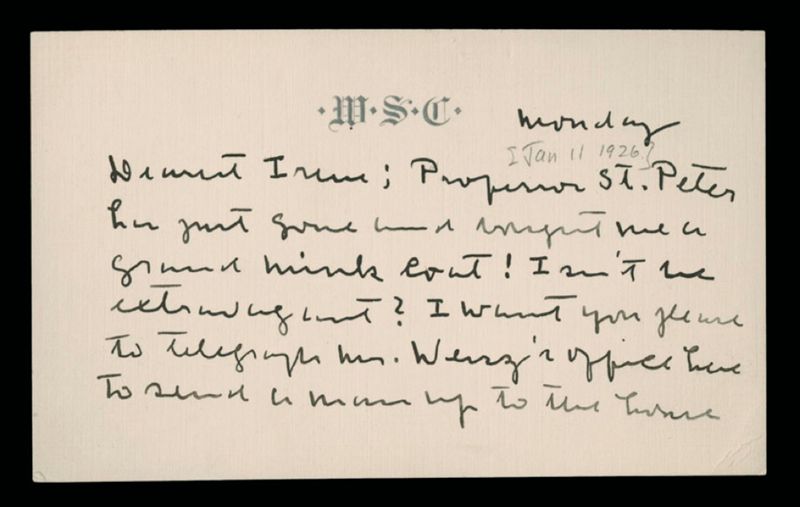 ·W·S·C·
Monday
[Jan 11 1926]
Dearest Irene; Professor St. Peter
has just gone and bought me a
grand mink coat! Isn't he
extravagant? I want you please
to telegraph Mr. Weisz's office here
to send a man up to the house